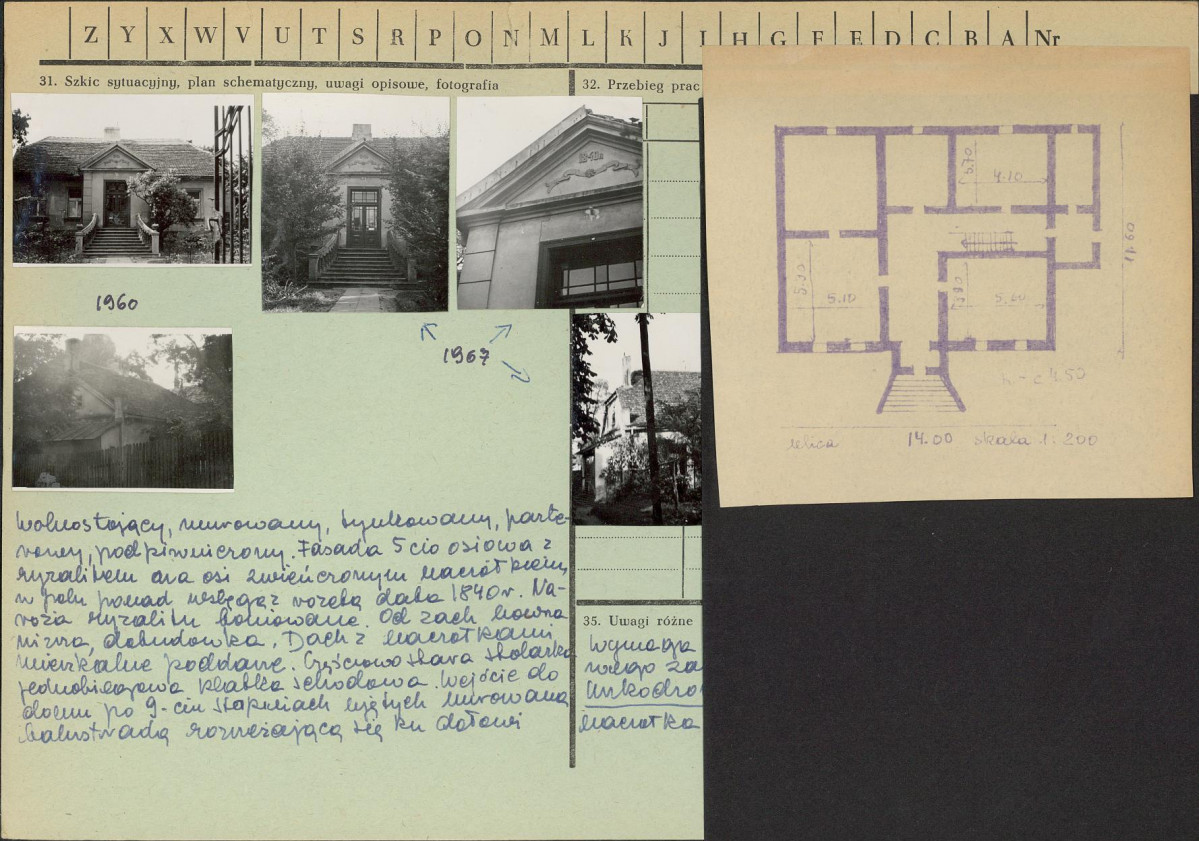 Z Y X W V U T S R P O N M L K J I H G F E D C B A Nr
31. Szkic sytuacyjny, plan schematyczny, uwagi opisowe, fotografia
32. Przebieg prac
1840
1960
1967
6.70
4.10
5.00
5.10
3.80
5.60
11.60
h – c 4.50
ulica 14.00 skala 1:200
Wolnostojący, murowany, tynkowany, parte-
rowy, podpiwniczony. Fasada 5cio osiowa z
ryzalitem na osi zwieńczonym naczółkiem,
w polu ponad wstęgą rozetą data 1840 r. Na-
roża ryzalitu boniowane. Od zach nowna
niższa, dobudówka. Dach z naczółkami
mieszkalne poddasze. Częściowo stara stolarka
jednobiegowa klatka schodowa. Wejście do
domu po 9-ciu stopniach ujętych murowaną
balustradą rozszerzającą się ku dołowi
35. Uwagi różne
Wymaga
nego za
naczółka